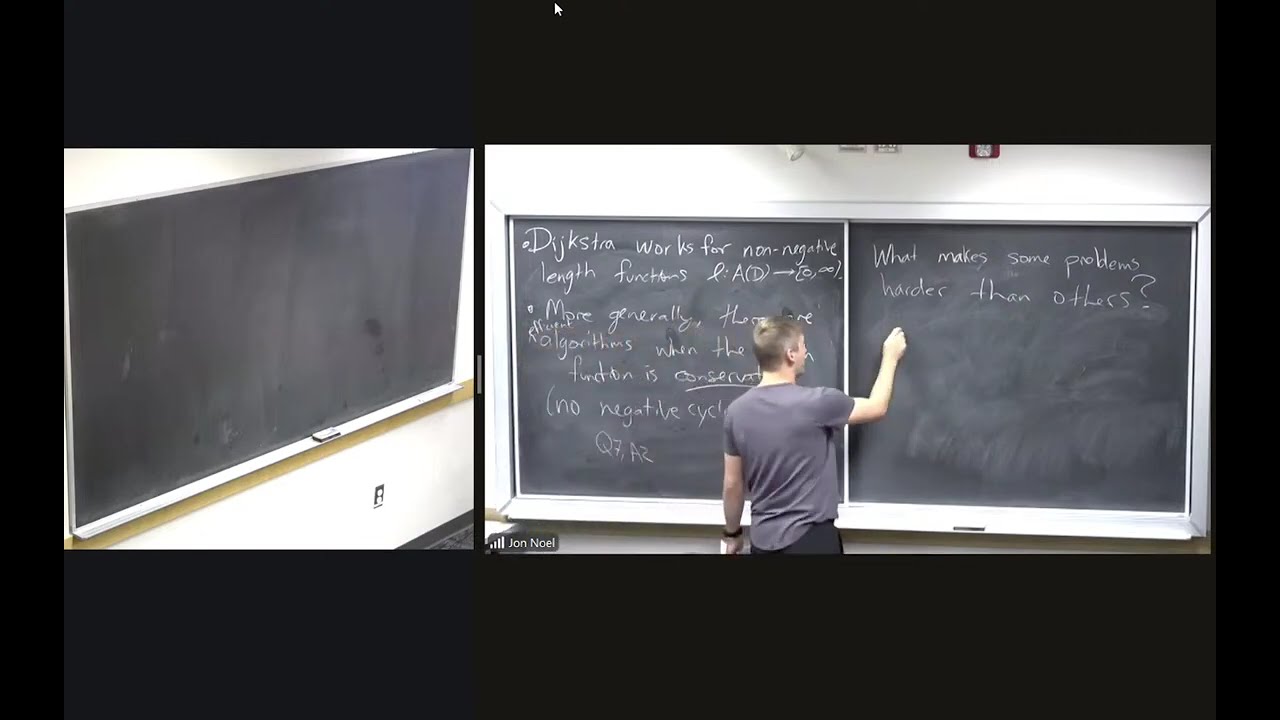 • Dijkstra works for non-negative
length functions ℓ: A(D) → [0, ∞).
• More generally, there are
efficient
algorithms when the
function is
(no negative
Q7, A2
What makes some problems
harder than others?
Jon Noel